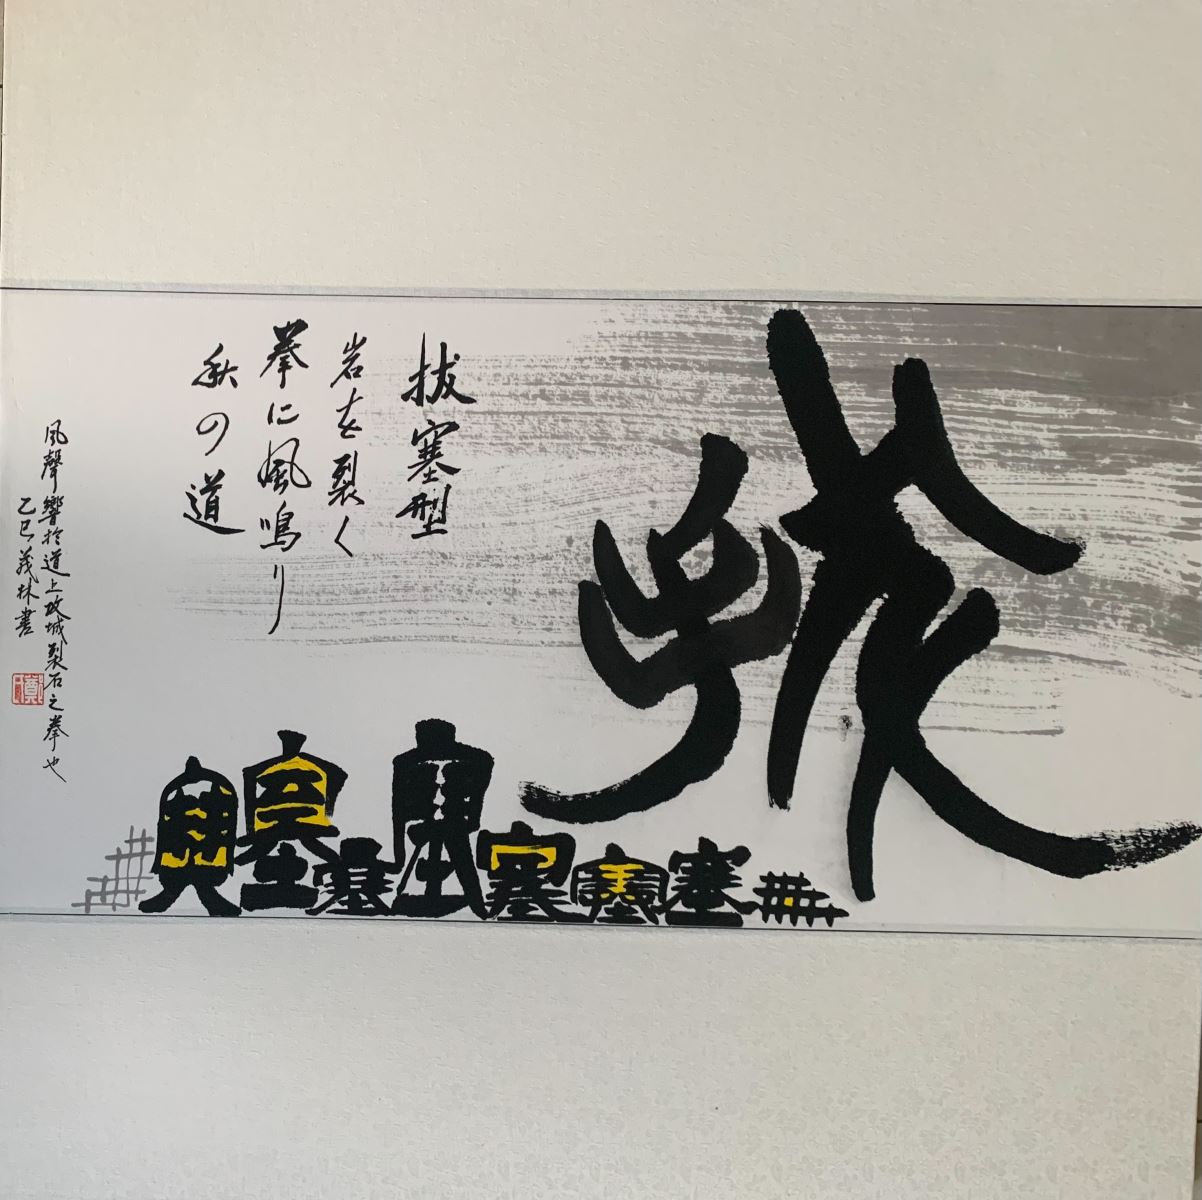 拔
塞塞塞塞塞塞塞
拔塞型
岩を裂く
拳に風鳴り
秋の道
風聲響於道上攻城裂石之拳也
乙巳義林書